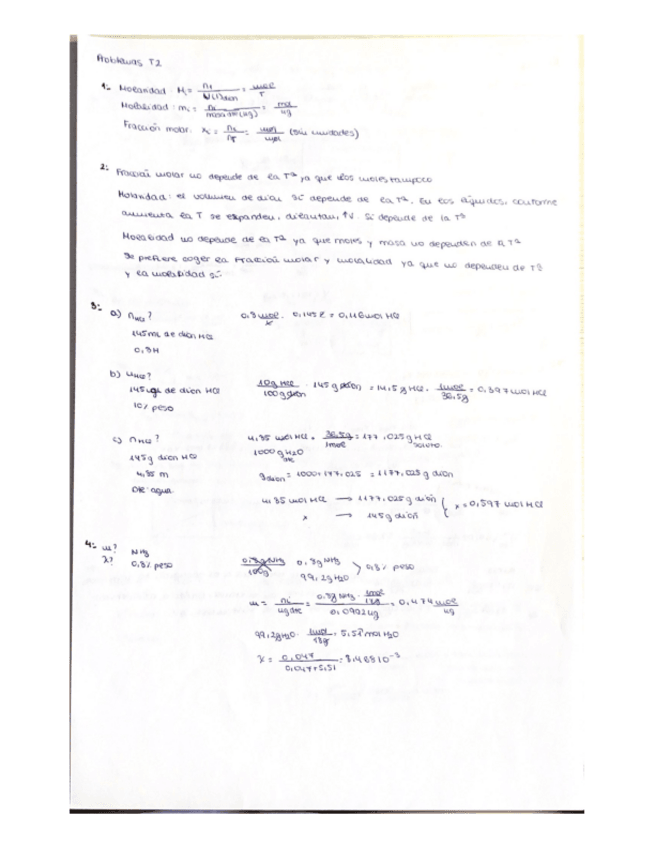 Problemas T2
1- Molaridad: Mi = ni / V(l) dion = mol / l
Molalidad: mi = ni / masa dte (kg) = mol / kg
Fracción molar: xi = ni / nT = mol / mol (sin unidades)
2: Fracción molar no depende de la Tª ya que los moles tampoco
Molaridad: el volumen de dion sí depende de la Tª. En los líquidos, conforme
aumenta la T se expanden, dilatan, ↑V. Sí depende de la Tª
Molalidad no depende de la Tª ya que moles y masa no dependen de la Tª
Se prefiere coger la Fracción molar y molalidad ya que no dependen de Tª
y la molaridad sí.
3: a) nHCl? 0,8 mol / l · 0,145 l = 0,116 mol HCl
145 mL de dion HCl
0,8 M
b) nHCl?
145 g de dion HCl 10 g HCl / 100 g dion · 145 g dion = 14,5 g HCl · 1 mol / 36,5 g = 0,397 mol HCl
10% peso
c) nHCl? 4,85 mol HCl · 36,5 g / 1 mol = 177,025 g HCl soluto
145 g dion HCl 1000 g H2O dte
4,85 m g dion = 1000 + 177,025 = 1177,025 g dion
Dte: agua
4,85 mol HCl → 1177,025 g dion
x → 145 g dion } x = 0,597 mol HCl
4: m? NH3
X? 0,8% peso
0,8 g NH3 / 100 g 0,8 g NH3 99,2 g H2O > 0,8% peso
m = ni / kg dte = 0,8 g NH3 · 1 mol / / 0,0992 kg = 0,474 mol / kg
99,2 g H2O · 1 mol / 18 g = 5,51 mol H2O
X = 0,047 / 0,047 + 5,51 = 8,468 10⁻³